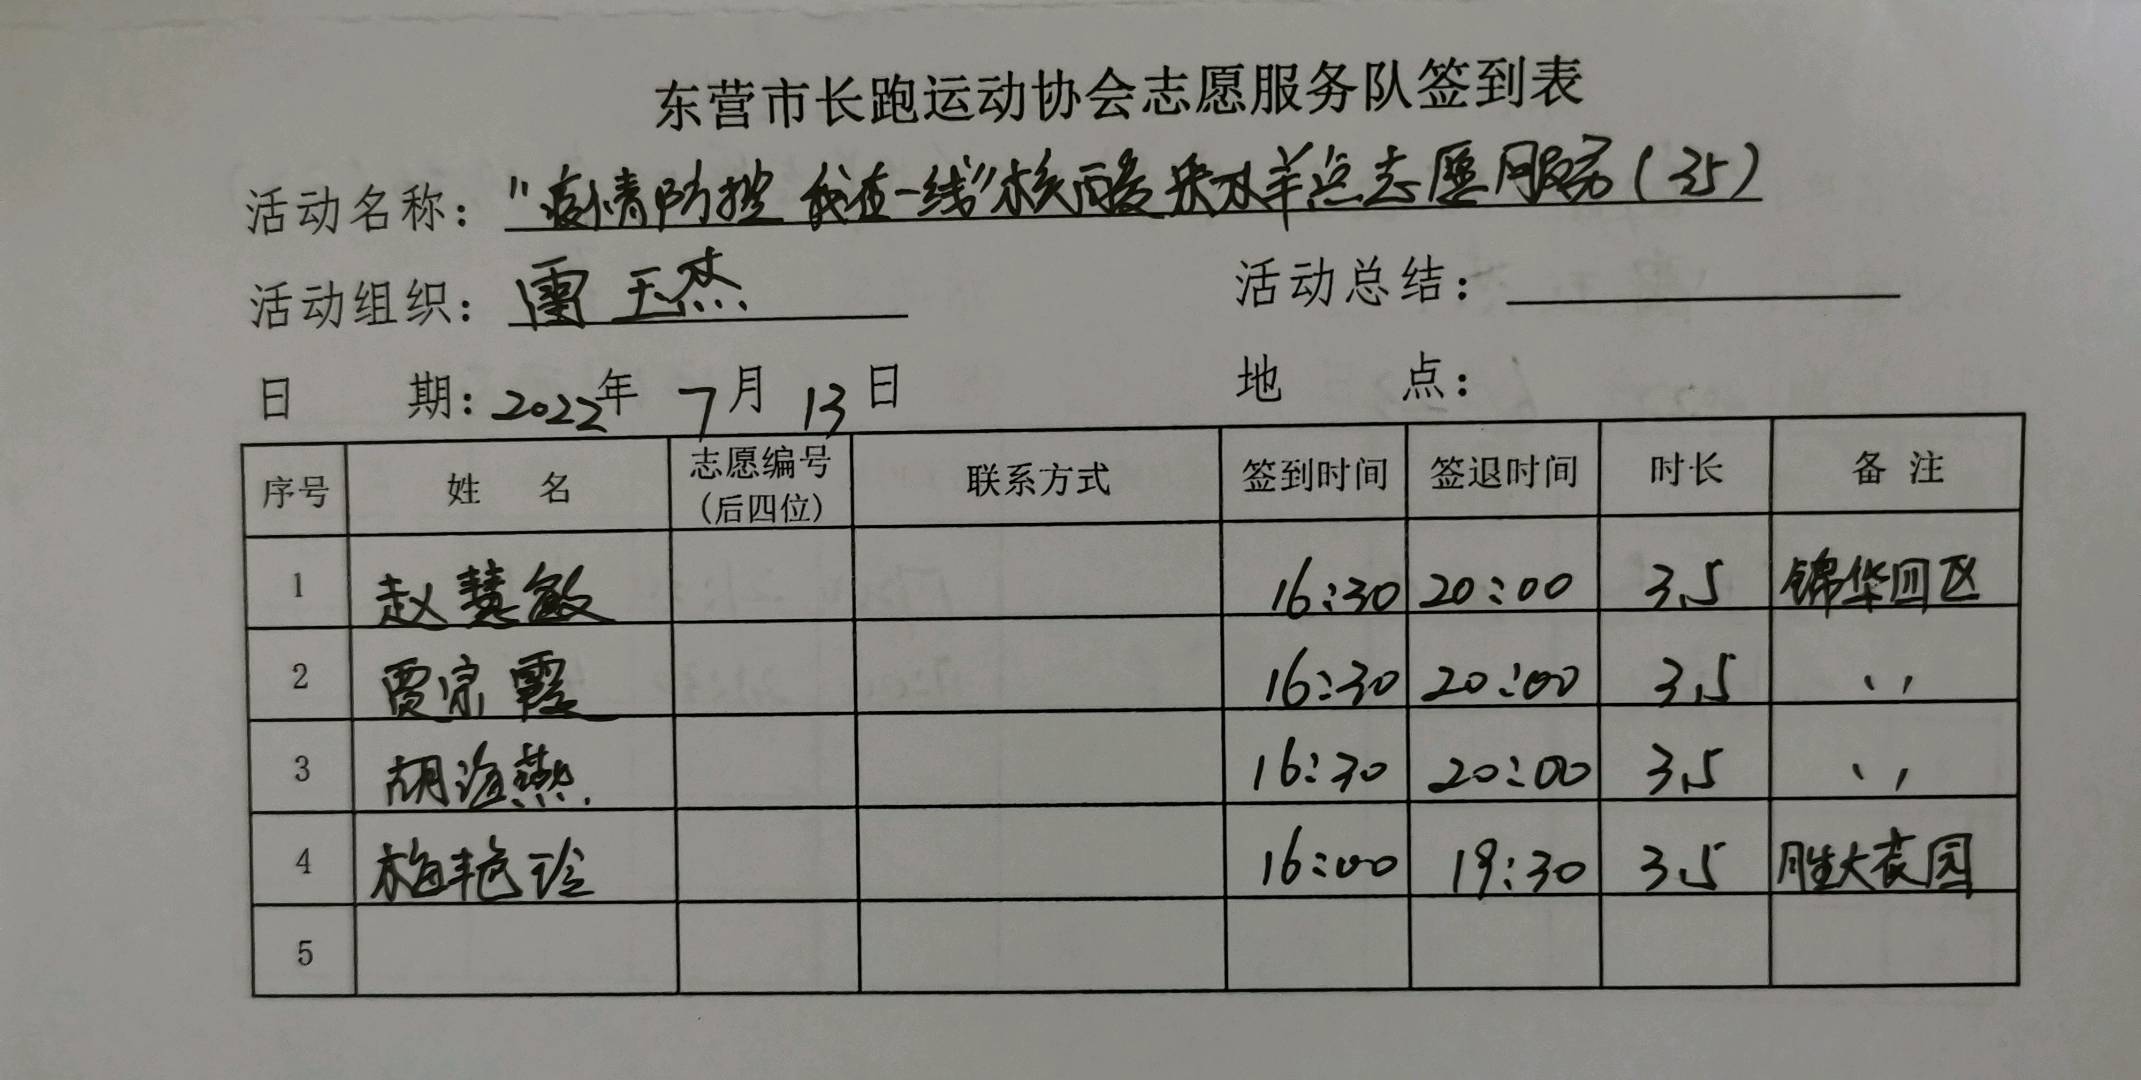 东营市长跑运动协会志愿服务队签到表
活动名称："疫情防控 我在一线"核酸采样点志愿服务（35）
活动组织：雷玉杰 活动总结：
日 期：2022年 7月 13日 地 点：
序号 姓 名 志愿编号（后四位） 联系方式 签到时间 签退时间 时长 备 注
1 赵慧敏 16:30 20:00 3.5 锦华四区
2 贾宗霞 16:30 20:00 3.5 、，
3 胡海燕 16:30 20:00 3.5 、，
4 梅艳珍 16:00 19:30 3.5 胜大花园
5